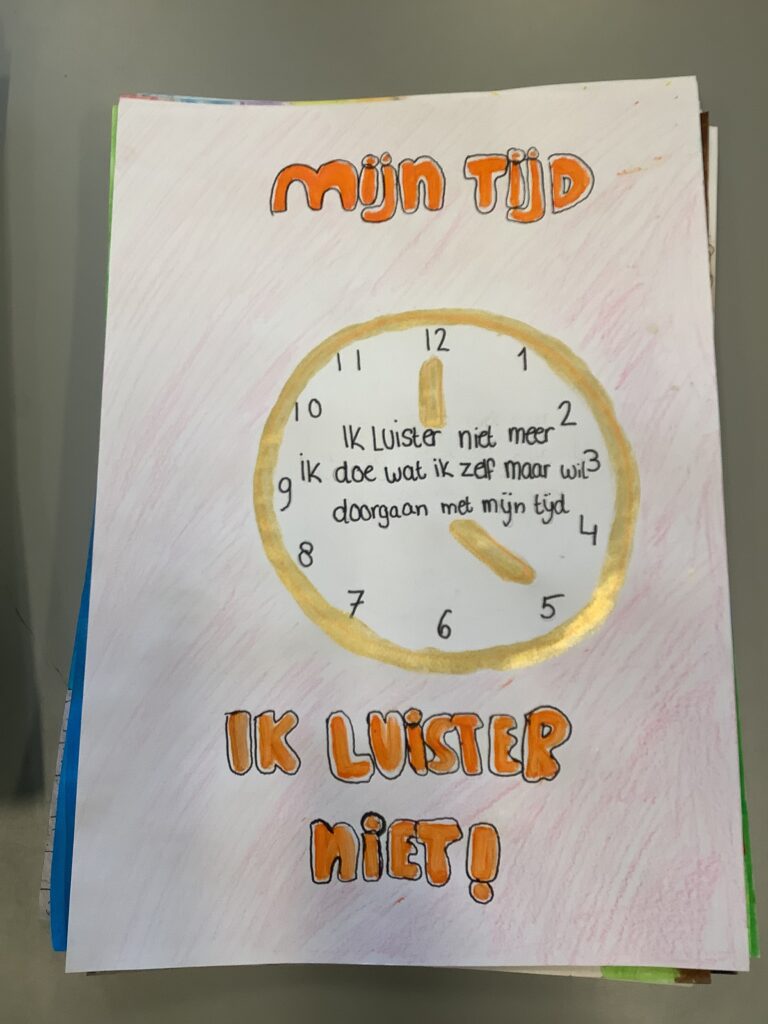 Mijn Tijd
12
11
1
10
2
IK Luister niet meer
ik doe wat ik zelf maar wil
3
9
doorgaan met mijn tijd
4
8
7
5
6
IK LUiSTER
NiET!